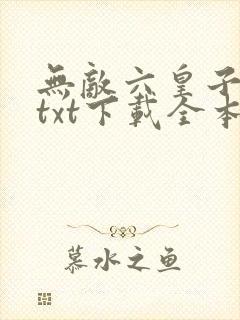 無敵六皇子
txt下載全本
慕水之鱼